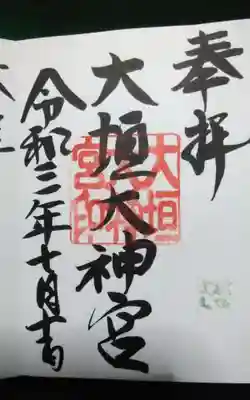 奉拝
大垣大神宮
大垣大神宮印
令和二年十月吉日